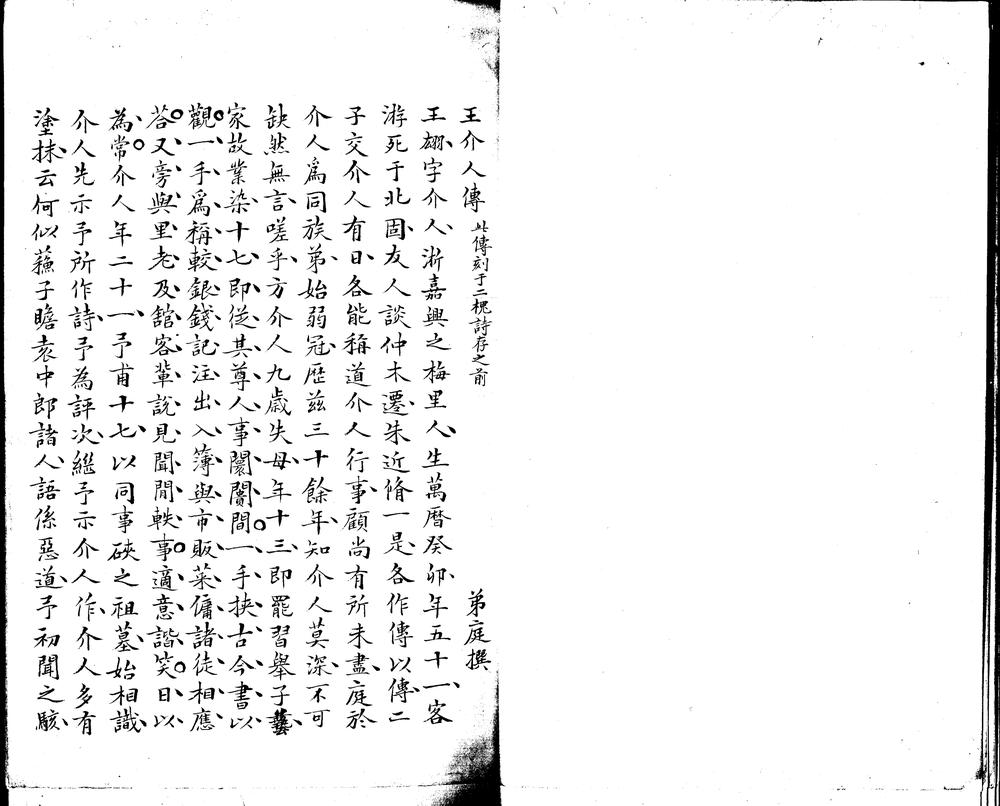 王介人傳 此傳刻于二槐詩存之前 弟庭撰
王翃字介人浙嘉興之梅里人生萬曆癸卯年五十一客
游死于北固友人談仲木遷朱近脩一是各作傳以傳二
子交介人有日各能稱道介人行事顧尚有所未盡庭於
介人爲同族弟始弱冠歷茲三十餘年知介人莫深不可
缺然無言嗟乎方介人九歲失母年十三即罷習舉子藝
家故業染十七即從其尊人事闤闠間一手挾古今書以
觀一手爲稱較銀錢記注出入簿與市販菜傭諸徒相應
荅又旁與里老及舘客輩說見聞閒軼事適意諧笑日以
為常介人年二十一予甫十七以同事硤之祖墓始相識
介人先示予所作詩予為評次繼予示介人作介人多有
塗抹云何似蘓子瞻袁中郎諸人語係惡道予初聞之駭